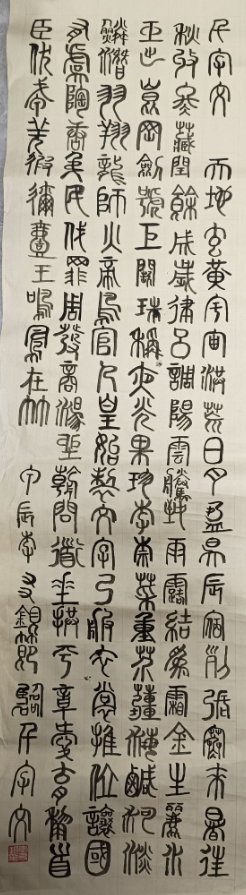 千字文 天地玄黃宇宙洪荒日月盈昃辰宿列張寒來暑往
秋收冬藏閏餘成歲律呂調陽雲騰致雨露結為霜金生麗水
玉出崑岡劍號巨闕珠稱夜光果珍李柰菜重芥薑海鹹河淡
鱗潛羽翔龍師火帝鳥官人皇始製文字乃服衣裳推位讓國
有虞陶唐弔民伐罪周發商湯坐朝問道垂拱平章愛育黎首
臣伏戎羌遐邇壹王鳴鳳在竹 甲辰 千字文